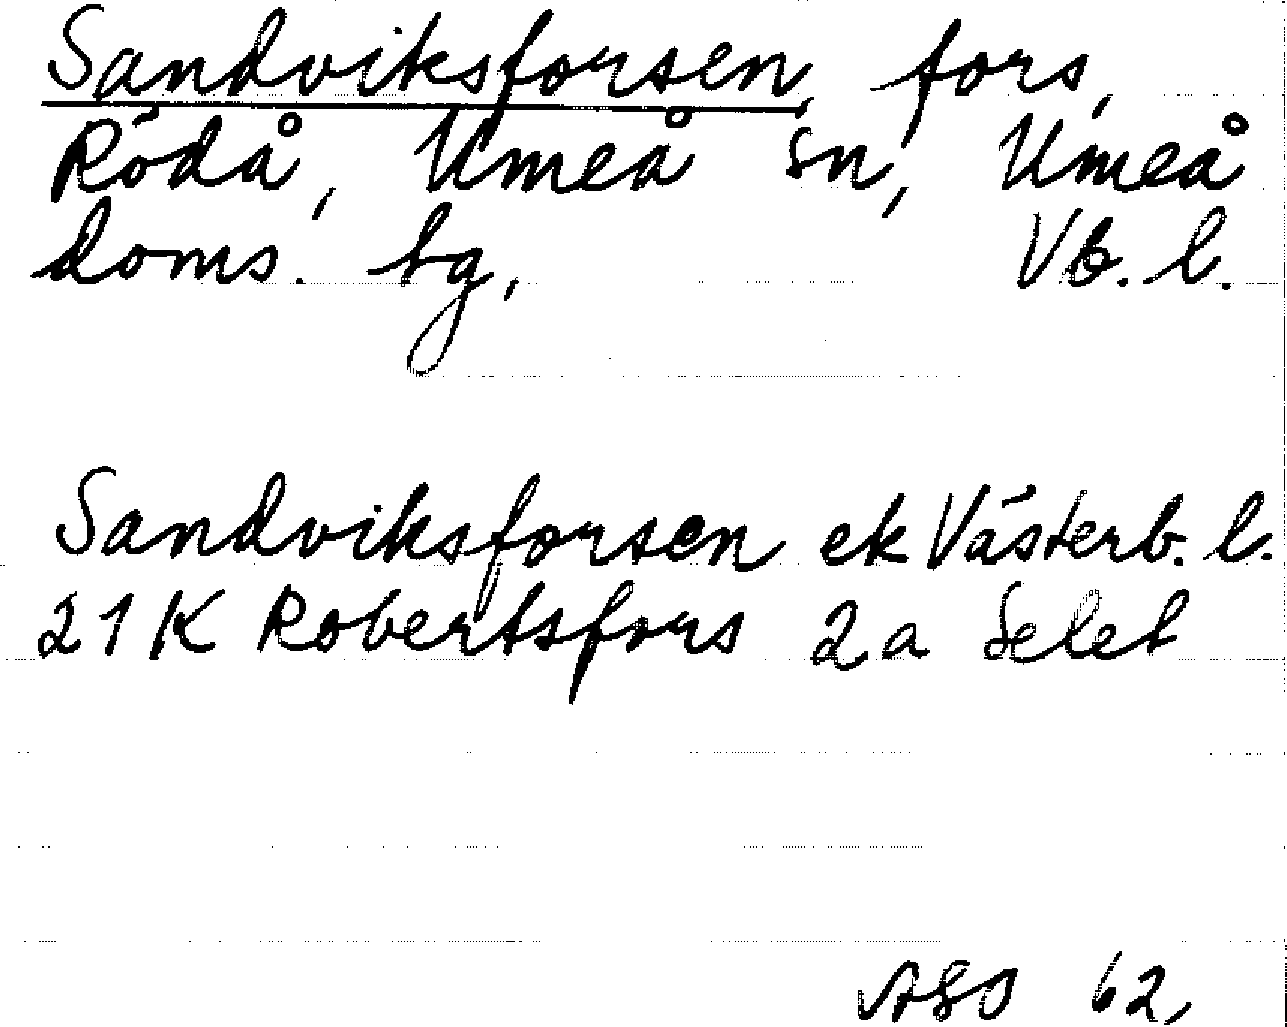 Sandviksforsen, fors,
Rödå, Umeå sn, Umeå
doms. tg, Vb. l.
Sandviksforsen ek Västerb. l.
21K Robertsfors 2a Selet
ASO 62,